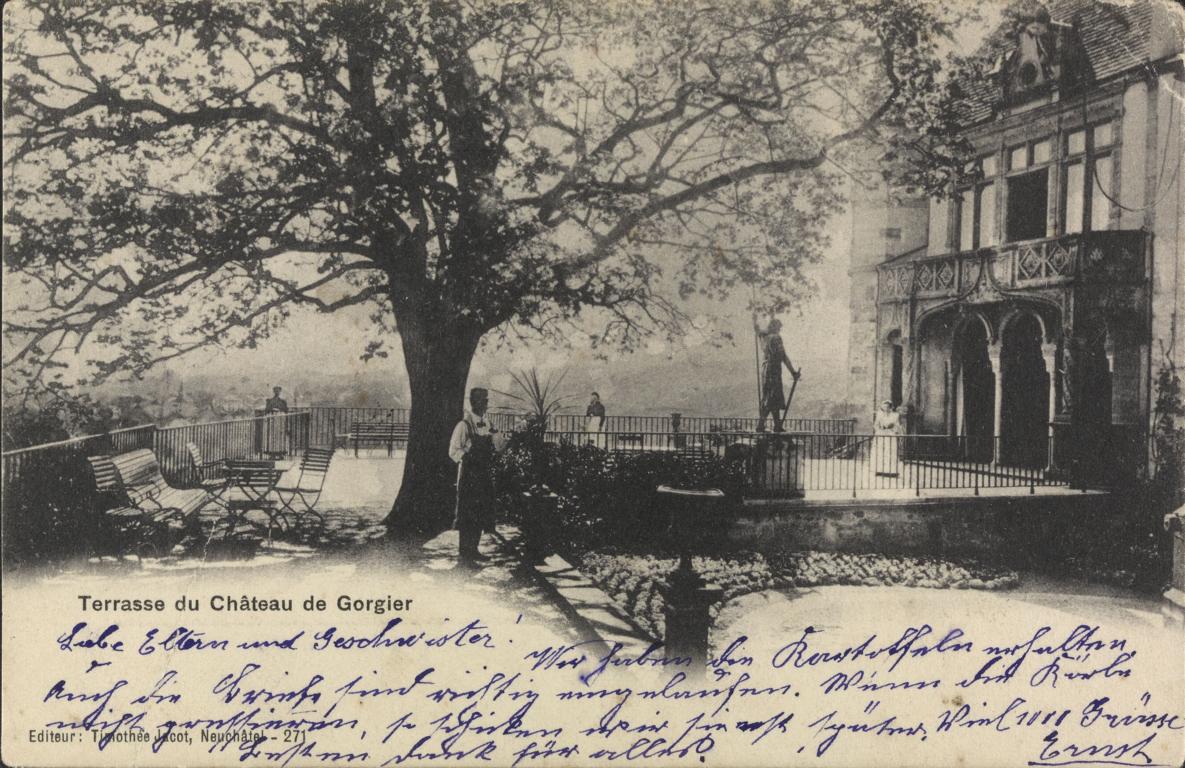 Terrasse du Château de Gorgier
Liebe Eltern und Geschwister!
Wir haben die Kartoffeln erhalten,
Auch die Briefe sind richtig eingelaufen. Wenn die Körbe
nicht pressieren, so schicken wir sie erst später. Viel 1000 Grüsse
Editeur: Timothée Jacot, Neuchâtel - 271
Besten Dank für alles!
Ernst